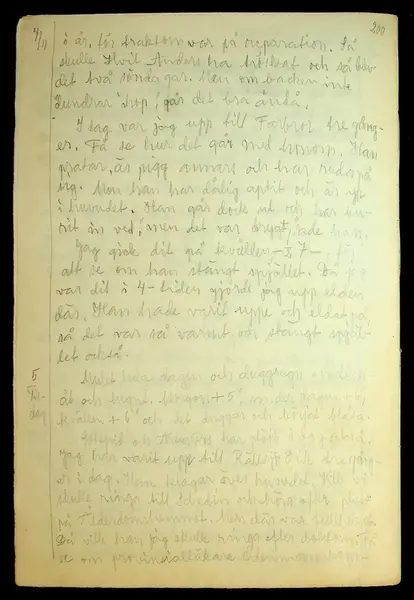 4/11 200
i år, för traktorn var på reparation. Så
skulle Hvit Anders ha tröskat och så blev
det två söndagar. Men om badan inte
dundrar ihop, går det bra ändå.
I dag var jag upp till Farbror tre gång-
er. Få se hur det går med honom. Han
pratar, är pigg annars och har reda på
sig. Men han har dålig aptit och är yr
i huvudet. Han går dock ut och har bu-
rit in ved, men det var drygt, sade han.
Jag gick dit på kvällen - 7 - för
att se om han stängt spjället. Då jag
var dit i 4-tiden gjorde jag upp elden
där. Han hade varit uppe och eldat på
så det var så varmt och stängt spjäl-
let också.
5 Mulet hela dagen och duggregn
Tis- åt och lugnt. Morgon +5°, middag
dag kvällen +6° och det duggar och börjat blåsa.
och har i dag
Jag har varit upp till Erik tre gång-
er i dag. Han klagar över huvudet. Vi
skulle ringa till och höra efter plats
på Ålderdomshemmet. Men där var fullt
Då ville han jag skulle ringa efter doktorn. Få
se om provinsialläkare